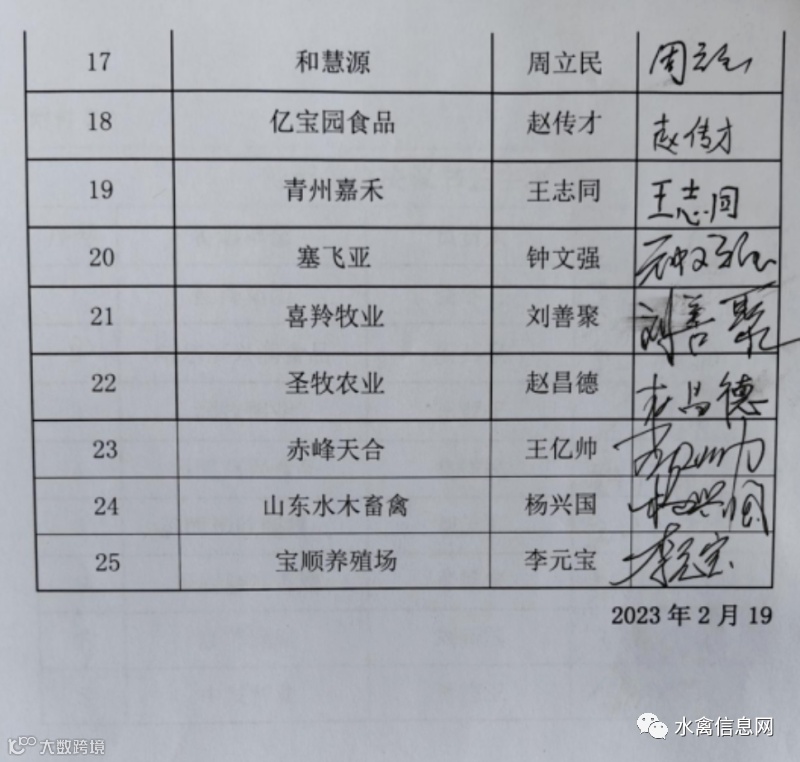 17 和慧源 周立民 周立民
18 亿宝园食品 赵传才 赵传才
19 青州嘉禾 王志同 王志同
20 塞飞亚 钟文强 钟文强
21 喜羚牧业 刘善聚 刘善聚
22 圣牧农业 赵昌德 赵昌德
23 赤峰天合 王亿帅
24 山东水木畜禽 杨兴国 杨兴国
25 宝顺养殖场 李元宝 李元宝
2023 年 2 月 19
水禽信息网
大数跨境